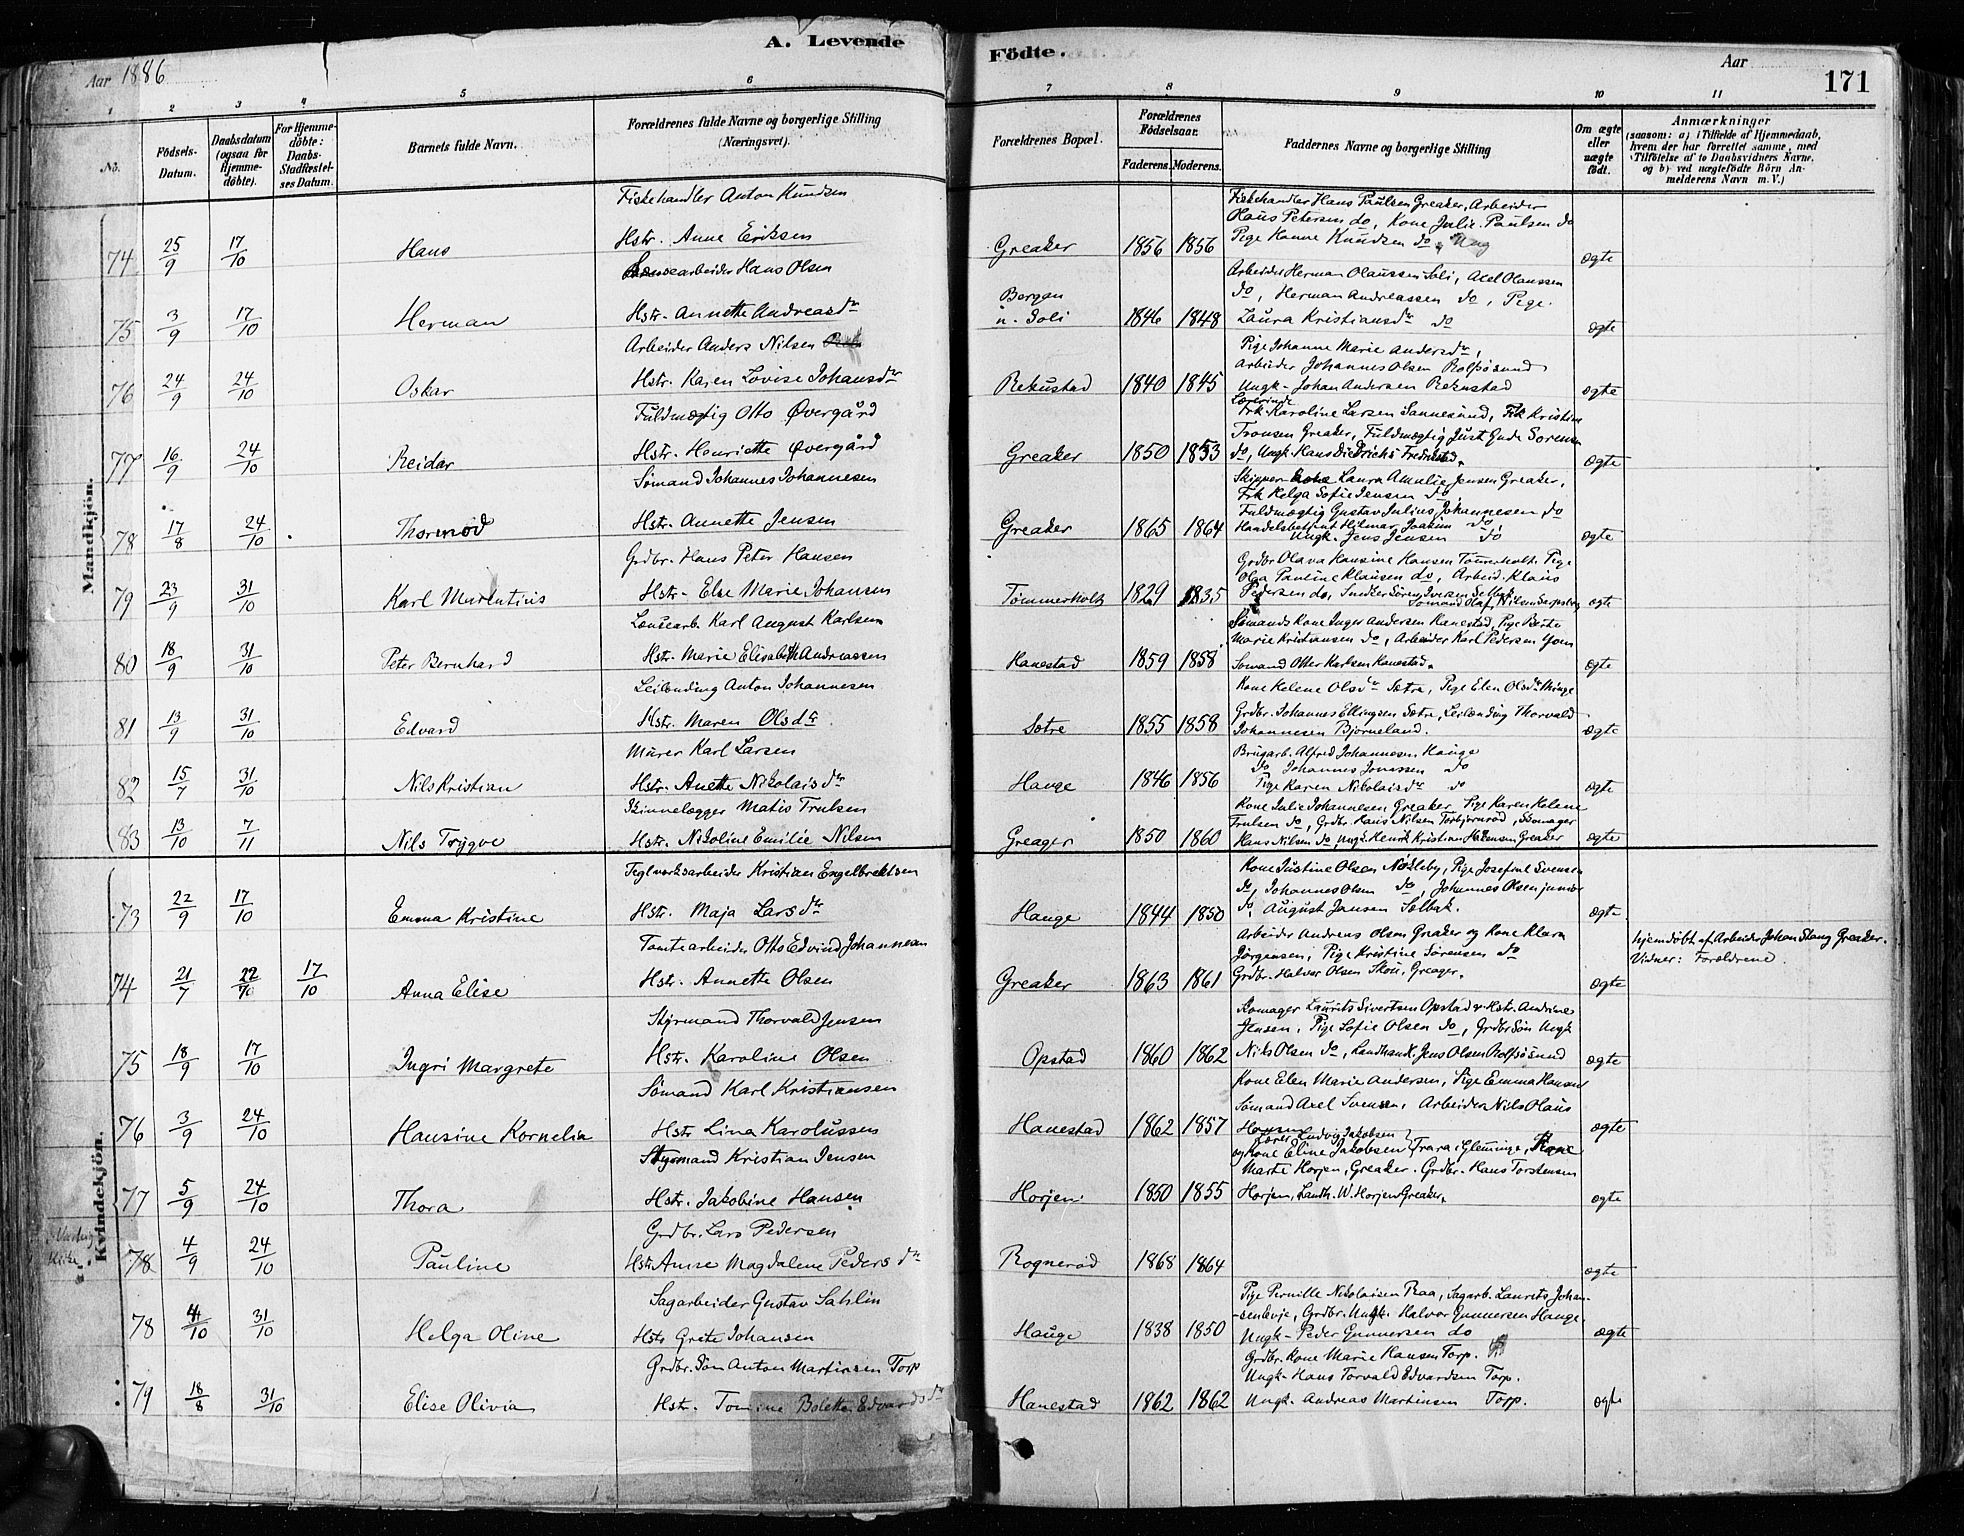 A. Levende Födte.
Aar 1886
Aar
171
1 2 3 4 5 6 7 8 9 10 11
No.
Födsels-Datum.
Daabsdatum (ogsaa for Hjemmedöbte).
For Hjemmedöbte: Daabs-Stadfæstelses Datum.
Barnets fulde Navn.
Forældrenes fulde Navne og borgerlige Stilling (Næringsvei).
Forældrenes Bopæl.
Forældrenes Födselsaar.
Faderens. Moderens.
Faddernes Navne og borgerlige Stilling
Om ægte eller uægte födt.
Anmærkninger
(saasom: a) i Tilfælde af Hjemmedaab, hvem der har forrettet samme, med Tilföielse af to Daabsvidners Navne, og b) ved uægtefödte Börn Anmelderens Navn m. V.)
Mandkjön.
Fiskehandler Anton Knudsen
Fiskehandler Hans Paulsen Greaker, Arbeider
Olaus Petersen do, Kone Julie Paulsen do
74 25/9 17/10 Hans Hstr. Anne Eriksen Greaker 1856 1856 Pige Hanne Knudsen do ægte
Lænsearbeider Hans Olsen
Arbeider Herman Olaussen Soli, Axel Olaussen
do, Herman Andreassen do, Pige
75 3/9 17/10 Herman Hstr. Annette Andreasdtr Bergan u. Soli 1846 1848 Laura Kristiansdtr do ægte
Arbeider Anders Nilsen
Pige Johanne Marie Andersdtr,
Arbeider Johannes Olsen Rolfsøsund
76 24/9 24/10 Oskar Hstr. Karen Lovise Johansdtr Rekustad 1840 1845 Ungk. Johan Andersen Rekustad ægte
Fuldmægtig Otto Øvergård
Lærerinde
Frk. Karoline Larsen Sannesund, Frk Kristine
Tronsen Greaker, Fuldmægtig Just Gude Sorensen
77 16/9 24/10 Reidar Hstr. Henriette Øvergård Greaker 1850 1853 do, Ungk. Hans Diedrichs Fredrikstad. ægte
Sömand Johannes Johannesen
Skipper kone Laura Amalie Jensen Greaker,
Frk Helga Sofie Jensen do,
Fuldmægtig Gustav Julius Johannesen do
78 17/8 24/10 Thormod Hstr. Annette Jensen Greaker 1865 1864 Handelsbetjent Hilmar Joakim do, ægte
Ungk. Jens Jensen do
Grdbr. Hans Peter Hansen
Grdbr Olava Hansine Hansen Tömmerholt. Pige
Olga Pauline Klausen do, Arbeid. Klaus
79 23/9 31/10 Karl Marentius Hstr. Else Marie Johansen Tömmerholt 1829 1835 Pedersen do, Snedker Sören Iversen Selbak ægte
Sömand Olaf Nilsen Sarpsborg
Lænsearb. Karl August Karlsen
Sömands Kone Inger Andersen Hanestad, Pige Berte
Marie Kristiansen do, Arbeider Karl Pedersen
80 18/9 31/10 Peter Bernhard Hstr. Marie Elisabeth Andreassen Hanestad 1859 1858 Sömand Otter Karlsen Hanestad. ægte
Leilænding Anton Johannesen
Kone Helene Olsdtr Sætre, Pige Elen Olsdtr Minge
Grdbr. Johannes Ellingsen Sætre, Leilænding Thorvald
81 13/9 31/10 Edvard Hstr. Maren Olsdtr Sætre 1855 1858 Johannesen Bjørneland. ægte
Murer Karl Larsen
Brugarb. Alfred Johannesen Hauge
do Johannes Jonassen do
82 15/7 31/10 Nils Kristian Hstr. Anette Nikolaisdtr Hauge 1846 1856 Pige Karen Nikolaisdtr do ægte
Skindelægger Matis Trulsen
Kone Julie Johannesen Greaker, Pige Karen Helene
Trulsen do, Grdbr. Hans Nilsen Torbjørnröd, Skomager
83 13/10 7/11 Nils Trygve Hstr. Nikoline Emilie Nilsen Greager 1850 1860 Hans Nilsen do, Ungk. Henrik Kristian Hansen Greaker ægte
Kvindekjön.
Teglverksarbeider Kristian Engelbrektsen
Kone Justine Olsen Nökleby, Pige Josefine Svensen
do, Johannes Olsen do, Johannes Olsen junior
73 22/9 17/10 Emma Kristine Hstr. Maja Larsdtr Hauge 1844 1850 do, August Jansen Selbak. ægte
Tomtearbeider Otto Edvind Johannesen
Arbeider Andreas Olsen Greaker og Kone Klara
Jørgensen, Pige Kristine Sørensen do
Hjemdöbt af Arbeider Johan Stang Greaker.
Vidner: Forældrene.
74 21/7 22/10 17/10 Anna Elise Hstr. Annette Olsen Greaker 1863 1861 Grdbr. Halvor Olsen Skou, Greager. ægte
Styrmand Thorvald Jensen
Skomager Laurits Sivertsen Opstad & Hstr. Andrine
Jensen, Pige Sofie Olsen do, Grdbr Sön Ungk
75 18/9 17/10 Ingri Margrete Hstr. Karoline Olsen Opstad 1860 1862 Nils Olsen do, Landhandl. Jens Olsen Rolfsösund ægte
Sömand Karl Kristiansen
Kone Elen Marie Andersen, Pige Emma Hansen
Sömand Axel Svensen, Arbeider Nils Olaus
76 3/9 24/10 Hansine Kornelia Hstr Lina Karolussen Hanestad 1862 1857 Hansen ægte
Styrmand Kristian Jensen
Lærer Ludvig Jakobsen
og Kone Eline Jakobsen Trara i Glemminge, Kone
Marte Horjen, Greaker. Grdbr. Hans Torstensen
77 5/9 24/10 Thora Hstr. Jakobine Hansen Horjen 1850 1855 Horjen, Landh. W. Horjen Greaker. ægte
Grdbr. Lars Pedersen
78 4/9 24/10 Pauline Hstr Anne Magdalene Pedersdtr Rognerød 1868 1864 ægte
Sagarbeider Gustav Sahlin
Pige Pernille Nikolaisen Raa, Sagarb. Laurits Johan-
senleie, Grdbr. Ungk. Halvor Gunnersen Hauge,
78 4/10 31/10 Helga Oline Hstr Grete Johansen Hauge 1838 1850 Ungk. Peder Gunnersen do ægte
Grdbr. Sön Anton Martinsen Torp
Grdbr. Kone Marie Hansen Torp.
Ungk. Hans Torvald Edvardsen Torp.
79 18/8 31/10 Elise Olivia Hstr. Tomine Bolette Edvardsdtr Hanestad 1862 1862 Ungk. Andreas Martinsen Torp. ægte